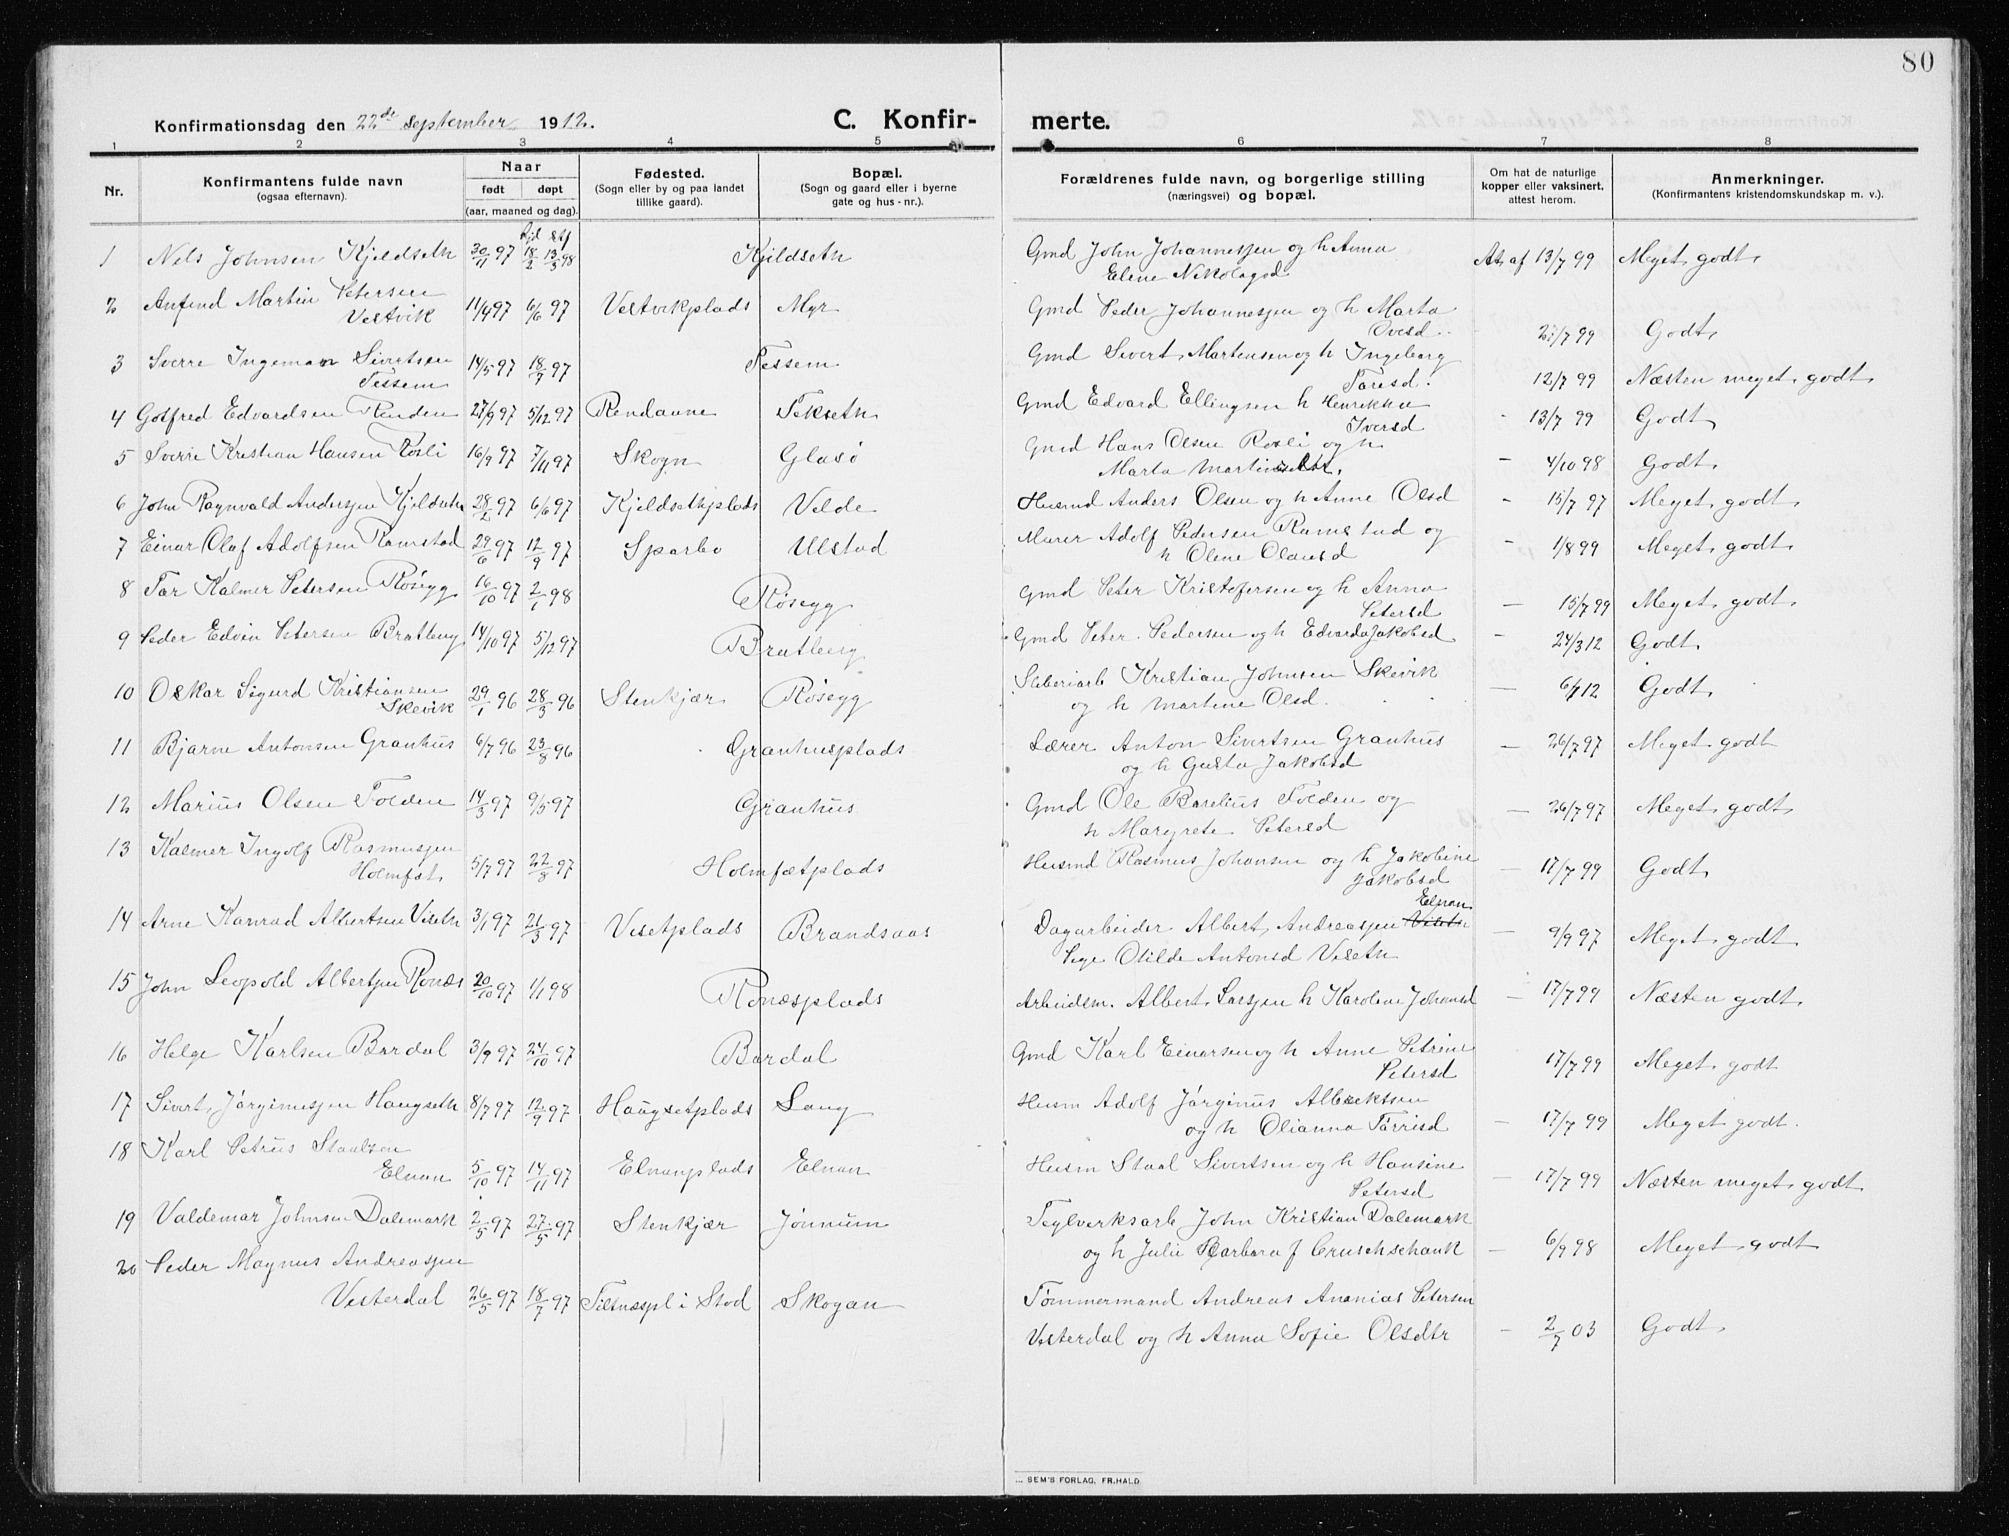 80
Konfirmationsdag den 22de September 1912. C. Konfir- merte.
1 2 3 4 5 6 7 8
Nr. Konfirmantens fulde navn (ogsaa efternavn). Naar født døpt (aar, maaned og dag). Fødested. (Sogn eller by og paa landet tillike gaard). Bopæl. (Sogn og gaard eller i byerne gate og hus-nr.). Forældrenes fulde navn, og borgerlige stilling (næringsvei) og bopæl. Om hat de naturlige kopper eller vaksinert, attest herom. Anmerkninger. (Konfirmantens kristendomskundskap m. v.).
1 Nils Johnsen Kjeldseth 30/11 97 18/2 13/3 98 Kjeldseth Gmd John Johannessen og h Anna At. af 13/7 99 Meget godt
Elene Nikolaysd
2 Anfind Martin Petersen 11/4 97 6/6 97 Vestvikplads Myr Gmd Peder Johannessen og h Marta
Vestvik Ovesd. 21/7 99 Godt
3 Sverre Ingeman Sivertsen 14/5 97 18/7 97 Tessem Gmd Sivert Martensen og h Ingeborg
Tessem Taresd. 12/7 99 Næsten meget godt
4 Gotfred Edvardsen Rinden 27/9 97 5/12 97 Rendaune Tekseth Gmd Edvard Ellingsen h Henrikka
Iversd 13/7 99 Godt
5 Sverre Kristian Hansen Rosli 16/9 97 7/11 97 Skogn Glasø Gmd Hans Olsen Rosli og h
Marta Martinsdtr. – 4/10 98 Godt
6 John Ragnvald Andersen Kjeldseth 28/2 97 6/6 97 Kjeldsethplads Velde Husmd Anders Olsen og h Anne Olsd – 15/7 97 Meget godt
7 Einar Olaf Adolfsen Ramstad 29/6 97 12/9 97 Sparbo Ulstad Murer Adolf Pedersen Ramstad og
h Olene Olausd – 1/8 99 Meget godt
8 Tor Kalmer Petersen Røsegg 16/10 97 2/1 98 Røsegg Gmd Peter Kristofersen og h Anna
Petersd – 15/7 99 Meget godt
9 Peder Edvin Petersen Bratberg 14/10 97 5/12 97 Bratberg Gmd Peter Pedersen og h Edvarda Jakobsd – 24/3 12 Godt
10 Oskar Sigurd Kristiansen 29/1 96 28/3 96 Stenkjær Røsegg Sliberiarb Kristian Johnsen Skevik
Skevik og h Martine Olsd. – 6/1 12 Godt
11 Bjarne Antonsen Granhus 6/7 96 23/8 96 Granhusplads Lærer Anton Sivertsen Granhus
og h Gusta Jakobsd – 26/7 97 Meget godt
12 Marius Olsen Folden 14/3 97 9/5 97 Granhus Gmd Ole Barelius Folden og
h Margrete Petersd – 26/7 97 Meget godt
13 Kalmer Ingolf Rasmussen 5/7 97 22/8 97 Holmfætplads Husmd Rasmus Johansen og h Jakobine
Holmfæt Jakobsd – 17/7 99 Godt
Elnan
14 Arne Konrad Albertsen Viseth 3/1 97 21/3 97 Visetplads Brandsaas Dagarbeider Albert Andreassen Viseth
Pige Olilde Antonsd Viseth – 9/9 97 Meget godt
15 John Leopold Albertsen Ronæs 20/10 97 1/1 98 Ronæsplads Arbeidsm. Albert Larssen h Karoline Johansd – 17/7 99 Næsten godt
16 Helge Karlsen Bardal 3/9 97 24/10 97 Bardal Gmd Karl Einarsen og h Anne Petrine
Petersd 17/7 99 Meget godt
17 Sivert Jørginussen Haugseth 8/7 97 12/9 97 Haugsetplads Laug Husm Adolf Jørginus Albriktsen
og h Olianna Tørrisd – 17/7 99 Meget godt.
18 Karl Petrus Staalsen
Elnan 5/10 97 14/11 97 Elnanplads Elnan Husm Staal Sivertsen og h Hansine
Petersd – 17/7 99 Næsten meget godt
19 Valdemar Johnsen Dalemark 2/5 97 27/5 97 Stenkjær Jønnum Teglverksarb John Kristian Dalemark
og h Julie Barbara f Cruschschank – 6/9 98 Meget godt
20 Peder Magnus Andreassen
Vesterdal 26/5 97 18/7 97 Tilsnæspl i Stod Skogan Tømmermand Andreas Ananias Petersen
Vesterdal og h Anna Sofie Olsdtr – 2/7 03 Godt
SEM'S FORLAG, FR.HALD